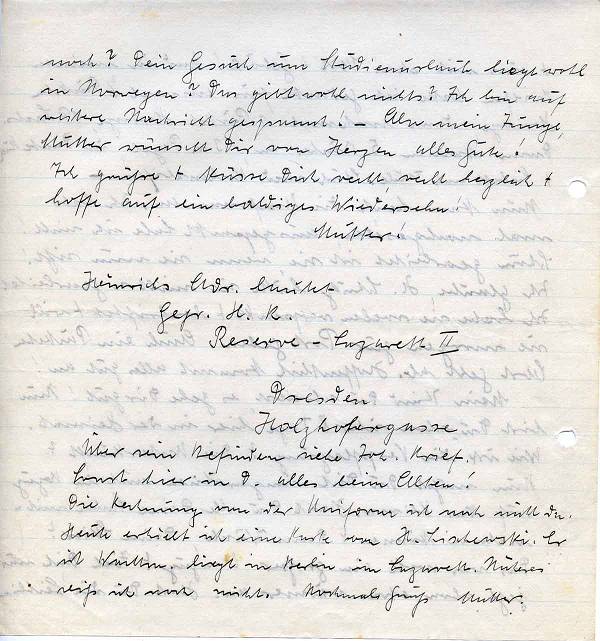 noch? Dein Gesuch um Studienurlaub liegt wohl
in Norwegen? Das gibt wohl nichts? Ich bin auf
weitere Nachricht gespannt! – Also mein Junge,
Mutter wünscht Dir von Herzen alles Gute!
Ich grüße + küsse Dich recht recht herzlich +
hoffe auf ein baldiges Wiedersehn!
Mutter!
Heinrichs Adr. lautet
Gefr. H. K.
Reserve – Lazarett II
Dresden
Holzhofergasse
Über sein Befinden siehe Joh. Brief.
Sonst hier in D. alles beim Alten!
Die Rechnung von der Uniform ist noch nicht da.
Heute erhielt ich eine Karte von H. Lischewski. Er
ist liegt in Berlin im Lazarett. Näheres
weiß ich noch nicht. Nochmals Gruß Mutter.